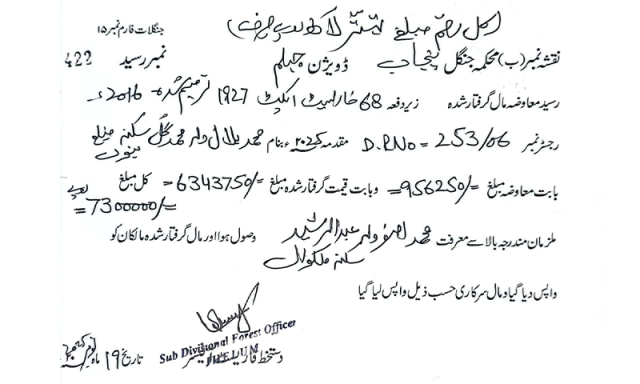 کل رقم مبلغ تہتر لاکھ روپے صرف
جنگلات فارم نمبر ۱۵
نقشہ نمبر (ب) محکمہ جنگل پنجاب ڈویژن جہلم نمبر رسید 422
رسید معاوضہ مال گرفتار شدہ زیر دفعہ 68 فارسٹ ایکٹ 1927 ترمیم شدہ 2016ء
رجسٹر نمبر D.R.No = 253/06 مقدمہ بنام محمد بلال ولد محمد گل سکنہ ضلع
بابت معاوضہ مبلغ =/956250 و بابت قیمت گرفتار شدہ مبلغ =/6343750 کل مبلغ
=7300000/= روپے
ملزمان مندرجہ بالا سے معرفت محمد اصغر ولد عبدالرشید وصول ہوا اور مال گرفتار شدہ مالکان کو
سکنہ ملکوال
واپس دیا گیا و مال سرکاری حسب ذیل واپس لیا گیا
Sub Divisional Forest Officer
JHELUM
دستخط
تاریخ 19 ماہ